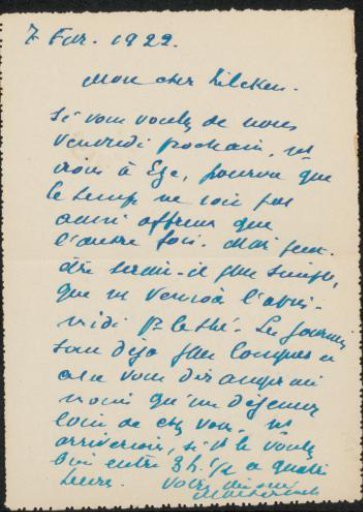 7 Fev. 1922.
Mon cher Zilcken.
Si vous voulez de nous
Vendredi prochain, ns
irons à Eze, pourvu que
le temps ne soit pas
aussi affreux que
l'autre fois. Mais peut-
être serait-il plus simple,
que ns venions l'après-
midi pr le thé. Les journées
sont déjà plus longues et
cela vous dérangerait
moins qu'un déjeuner
loin de chez vous. ns
arriverions, si vs le voulez
bien entre 3 h. 1/2 et quatre
heures. Votre